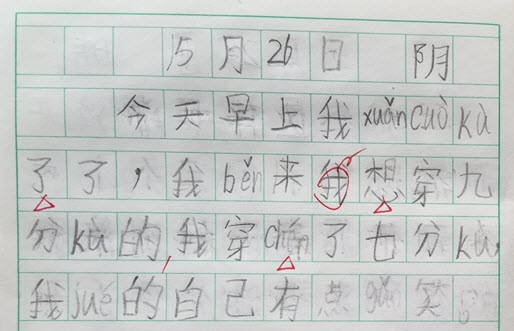 5月26日 阴
今天早上我xuǎncuòkù
了了，我běn来我想穿九
分kù的我穿chén了七分kù,
我jué的自己有点gǎn笑。